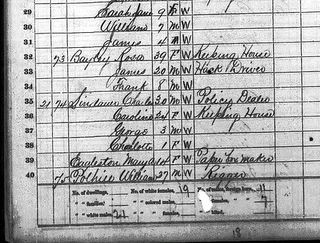 Sarah Jane 9 F W
30 William 7 M W
31 James 4 M W
32 73 Bayley Rosa 39 F W Keeping House
33 James 20 M W Hack Driver
34 Frank 8 M W
35 21 74 Lindauer Charles 30 M W Policy Dealer
36 Caroline 24 F W Keeping House
37 George 3 M W
38 Charlotte 1 F W
39 Eagleston Mary 14 F W Paper Box maker
40 75 William 27 M W
No. of dwellings, No. of white females, 19 No. of males, foreign born, 11
" families, " " colored males, " " females, " " 7
" white males, 21 " " " females, " " blind,